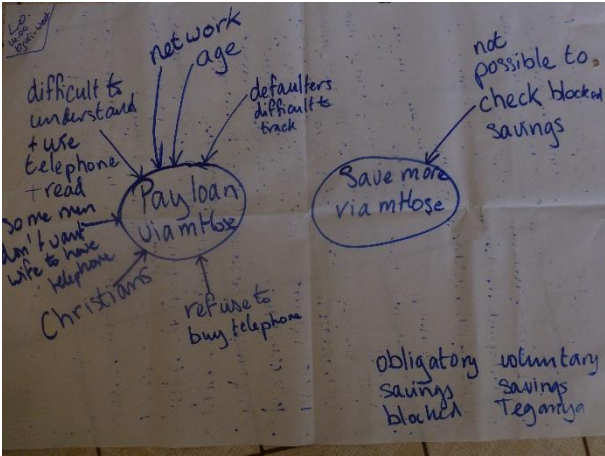 LO
network
age
difficult to
understand
+ use
telephone
+ read
defaulters
difficult to
track
Pay loan
via mHose
some men
don't want
wife to have
telephone
Christians
refuse to
buy telephone
not
possible to
check blocked
savings
Save more
via mHose
obligatory
savings
blocked
voluntary
savings